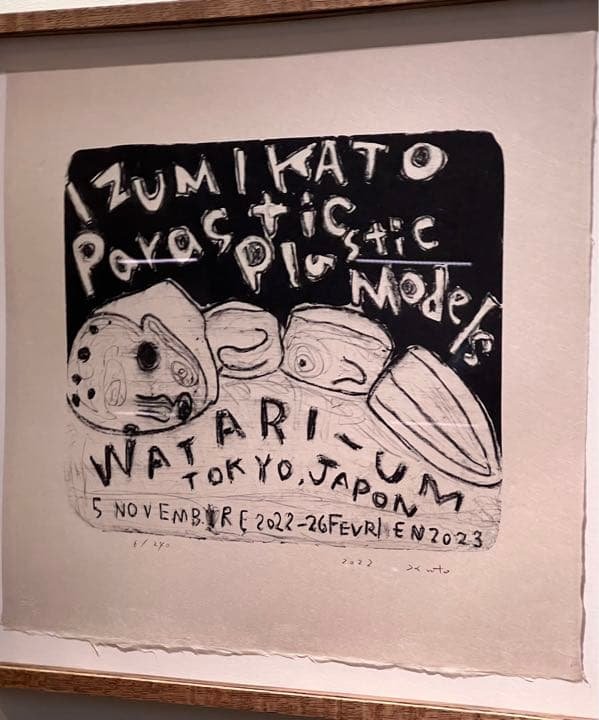 IZUMI KATO
Parastic
Plastic
Models
WATARI-UM
TOKYO, JAPON
5 NOVEMBRE 2022-26FEVRIEN2023
6/240 2022 Kato